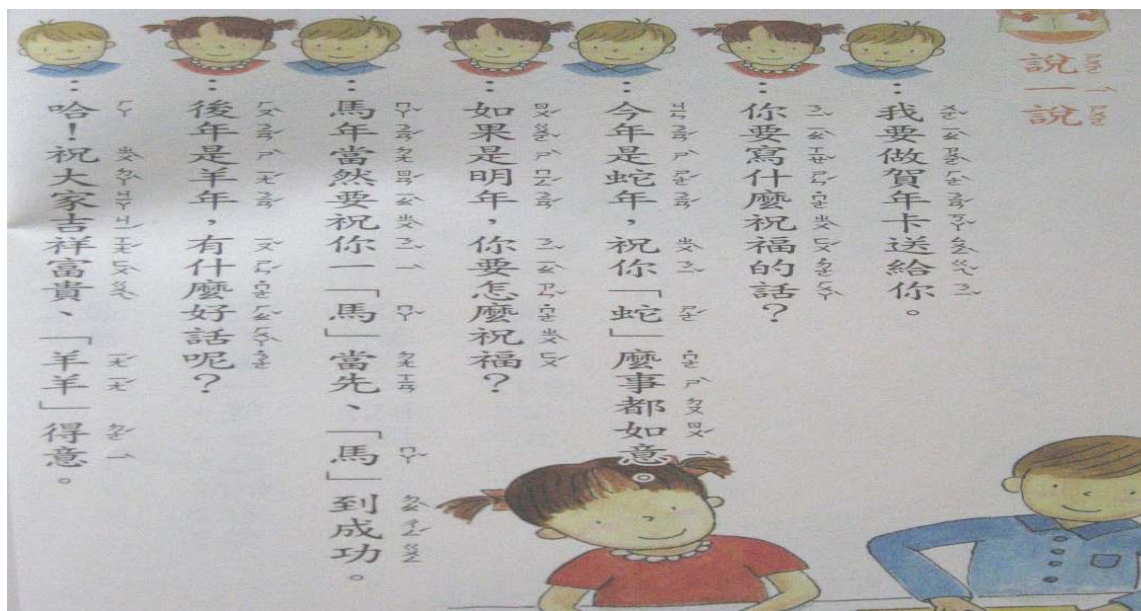 說一說
：我要做賀年卡送給你。
：你要寫什麼祝福的話？
：今年是蛇年，祝你「蛇」麼事都如意。
：如果是明年，你要怎麼祝福？
：馬年當然要祝你一「馬」當先、「馬」到成功。
：後年是羊年，有什麼好話呢？
：哈！祝大家吉祥富貴、「羊羊」得意。